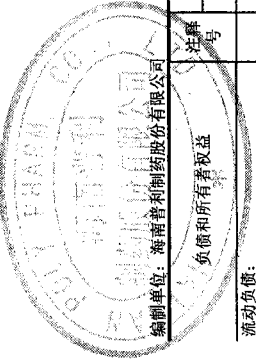 编制单位：海南普利制药股份有限公司
负债和所有者权益
注释号
流动负债：
PHARM CO.